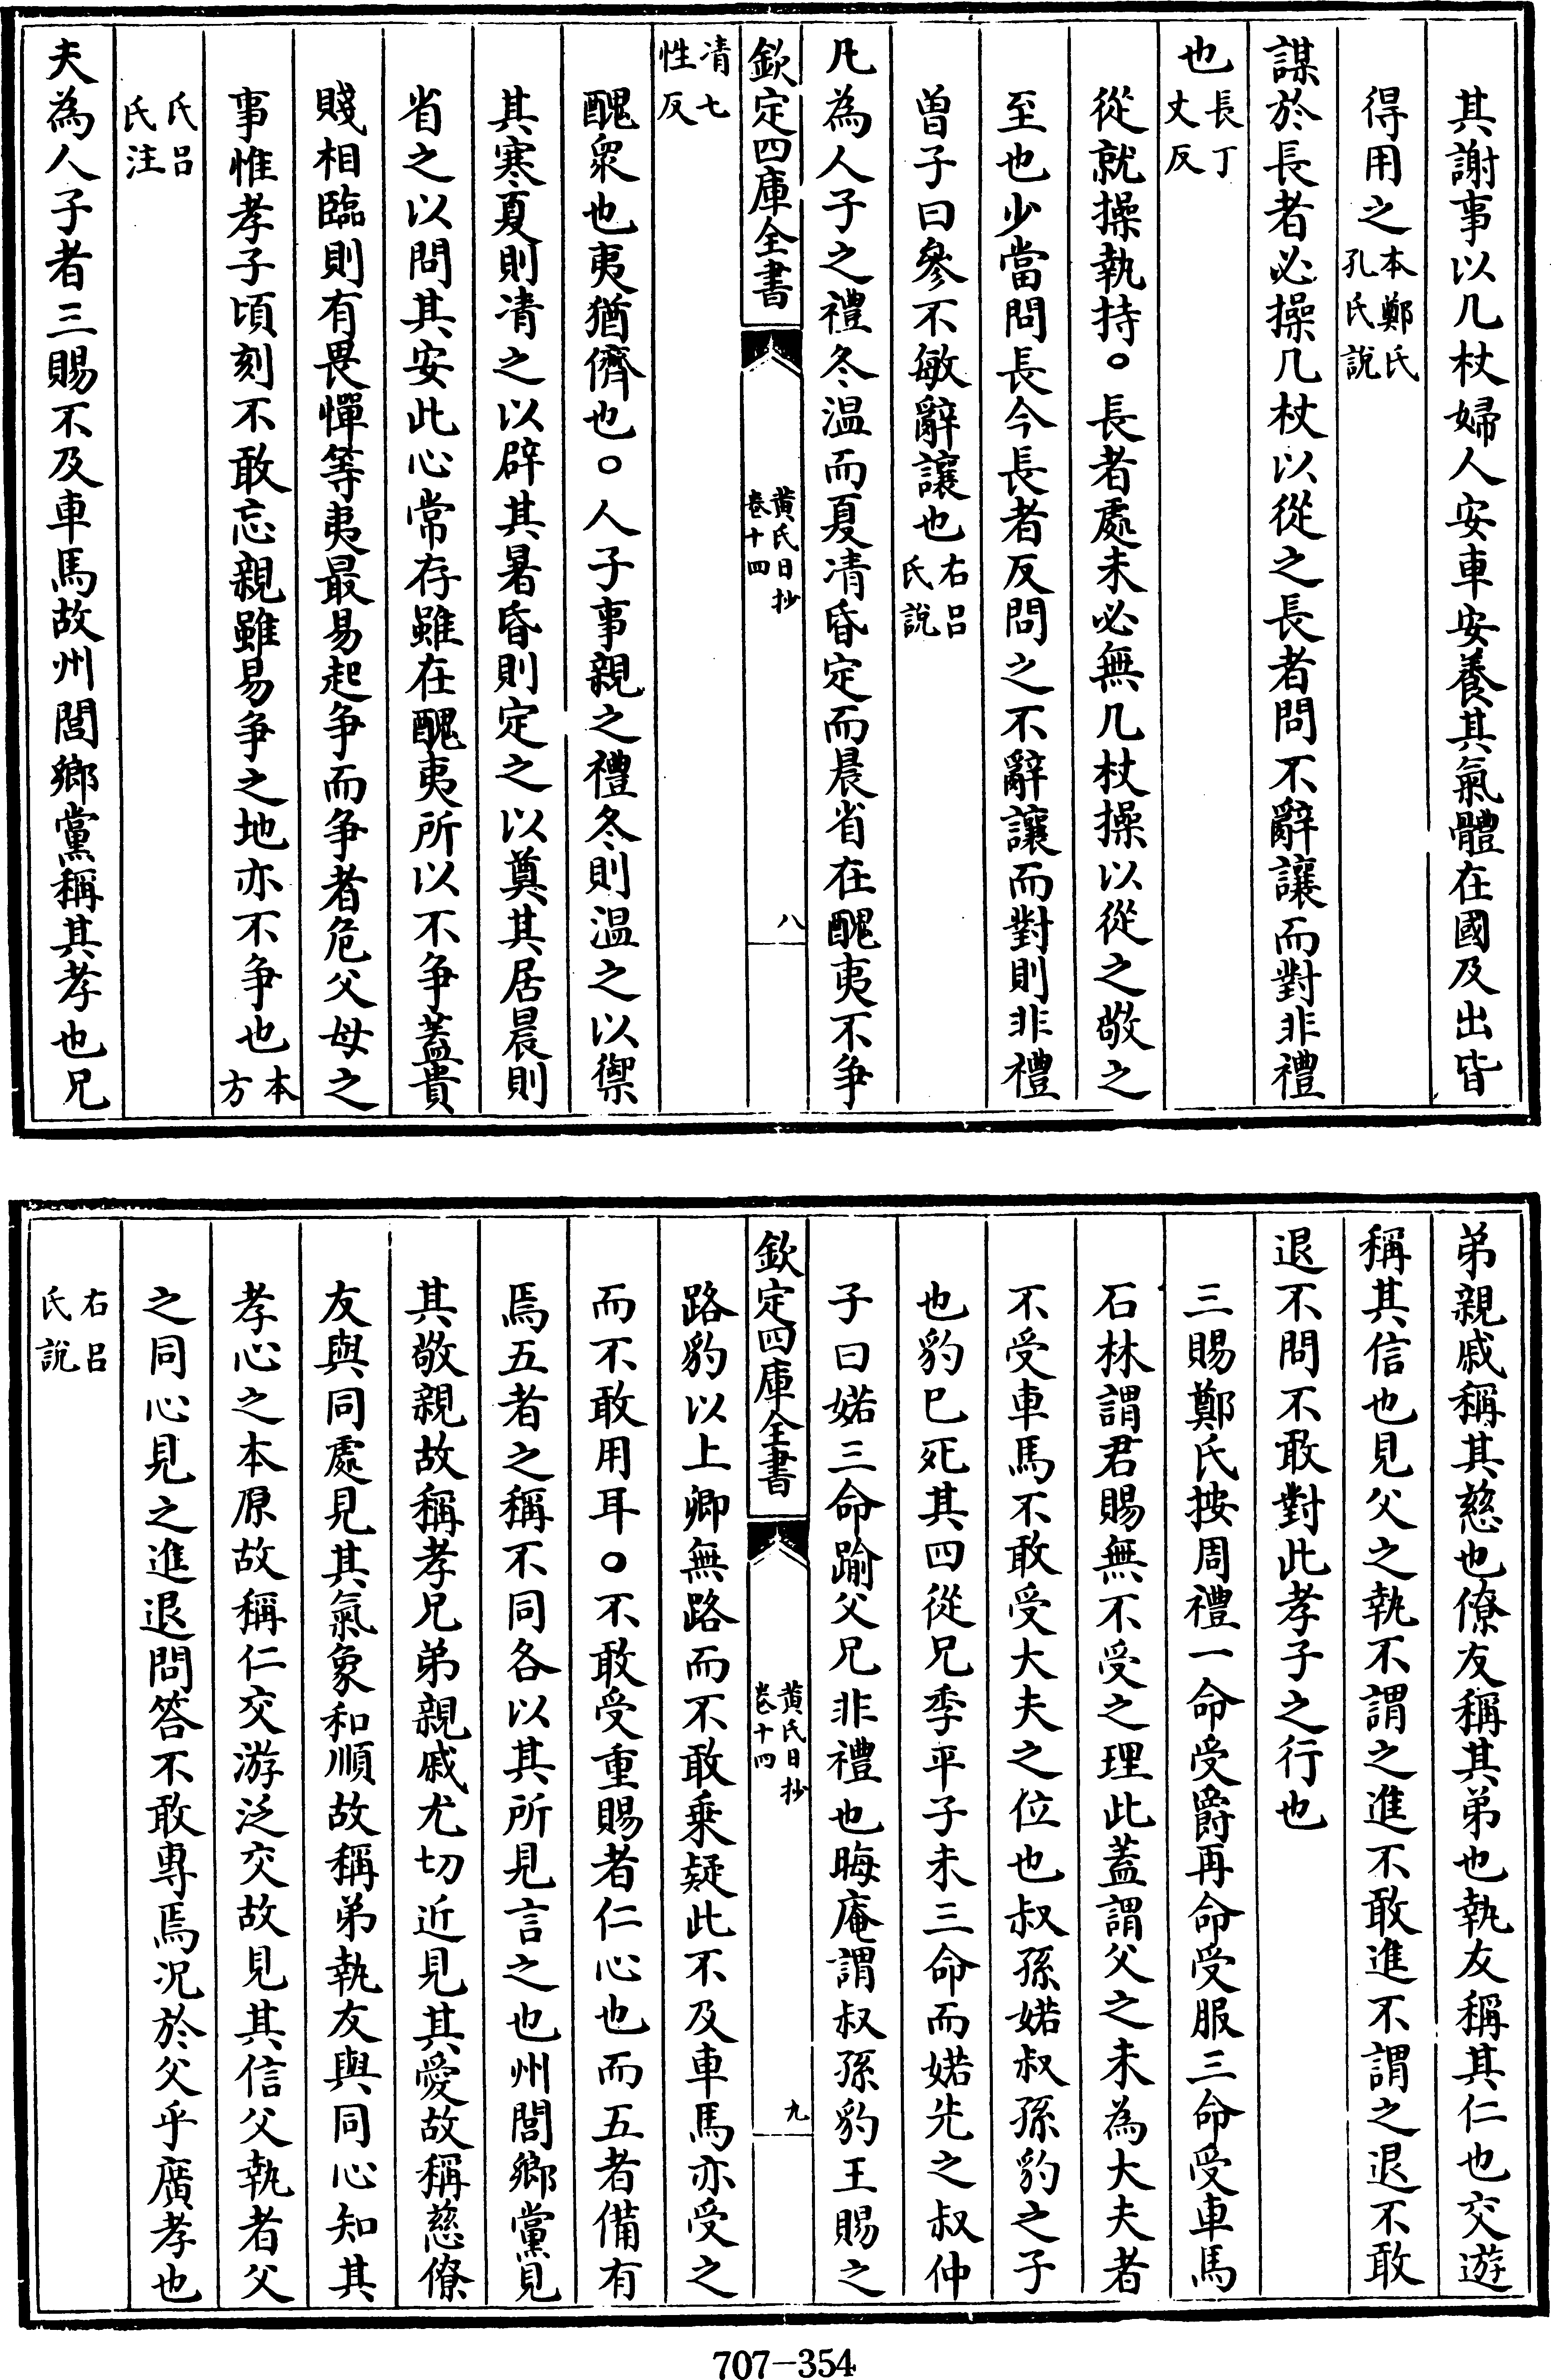 其謝事以几杖婦人安車安養其氣體在國及出皆
得用之本鄭氏孔氏說
謀於長者必操几杖以從之長者問不辭讓而對非禮
也長丁丈反
從就操執持○長者處未必無几杖操以從之敬之
至也少當問長今長者反問之不辭讓而對則非禮
曾子曰參不敏辭讓也右呂氏說
凡為人子之禮冬温而夏凊昏定而晨省在醜夷不争
欽定四庫全書
黄氏日抄
卷十四
八
凊七性反
醜衆也夷猶儕也○人子事親之禮冬則温之以禦
其寒夏則凊之以辟其暑昏則定之以奠其居晨則
省之以問其安此心常存雖在醜夷所以不争蓋貴
賤相臨則有畏憚等夷最易起争而争者危父母之
事惟孝子頃刻不敢忘親雖易争之地亦不争也本方
氏呂氏注
夫為人子者三賜不及車馬故州閭鄉黨稱其孝也兄
弟親戚稱其慈也僚友稱其弟也執友稱其仁也交遊
稱其信也見父之執不謂之進不敢進不謂之退不敢
退不問不敢對此孝子之行也
三賜鄭氏按周禮一命受爵再命受服三命受車馬
石林謂君賜無不受之理此蓋謂父之未為大夫者
不受車馬不敢受大夫之位也叔孫婼叔孫豹之子
也豹已死其四從兄季平子未三命而婼先之叔仲
子曰婼三命踰父兄非禮也晦庵謂叔孫豹王賜之
欽定四庫全書
黄氏日抄
卷十四
九
路豹以上卿無路而不敢乗疑此不及車馬亦受之
而不敢用耳○不敢受重賜者仁心也而五者備有
焉五者之稱不同各以其所見言之也州閭鄉黨見
其敬親故稱孝兄弟親戚尤切近見其愛故稱慈僚
友與同處見其氣象和順故稱弟執友與同心知其
孝心之本原故稱仁交游泛交故見其信父執者父
之同心見之進退問答不敢專焉况於父乎廣孝也
右呂氏說
707-354